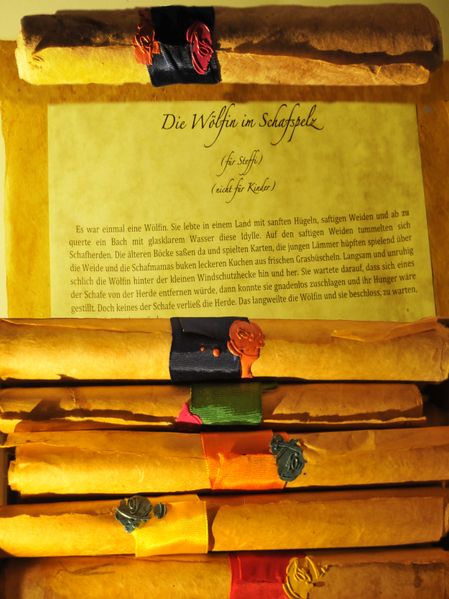 Die Wölfin im Schafspelz
(für Steffi)
(nicht für Kinder)
Es war einmal eine Wölfin. Sie lebte in einem Land mit sanften Hügeln, saftigen Weiden und ab zu
querte ein Bach mit glasklarem Wasser diese Idylle. Auf den saftigen Weiden tummelten sich
Schafherden. Die älteren Böcke saßen da und spielten Karten, die jungen Lämmer hüpften spielend über
die Weide und die Schafmamas buken leckeren Kuchen aus frischen Grasbüscheln. Langsam und unruhig
schlich die Wölfin hinter der kleinen Windschutzhecke hin und her. Sie wartete darauf, dass sich eines
der Schafe von der Herde entfernen würde, dann konnte sie gnadenlos zuschlagen und ihr Hunger wäre
gestillt. Doch keines der Schafe verließ die Herde. Das langweilte die Wölfin und sie beschloss, zu warten,